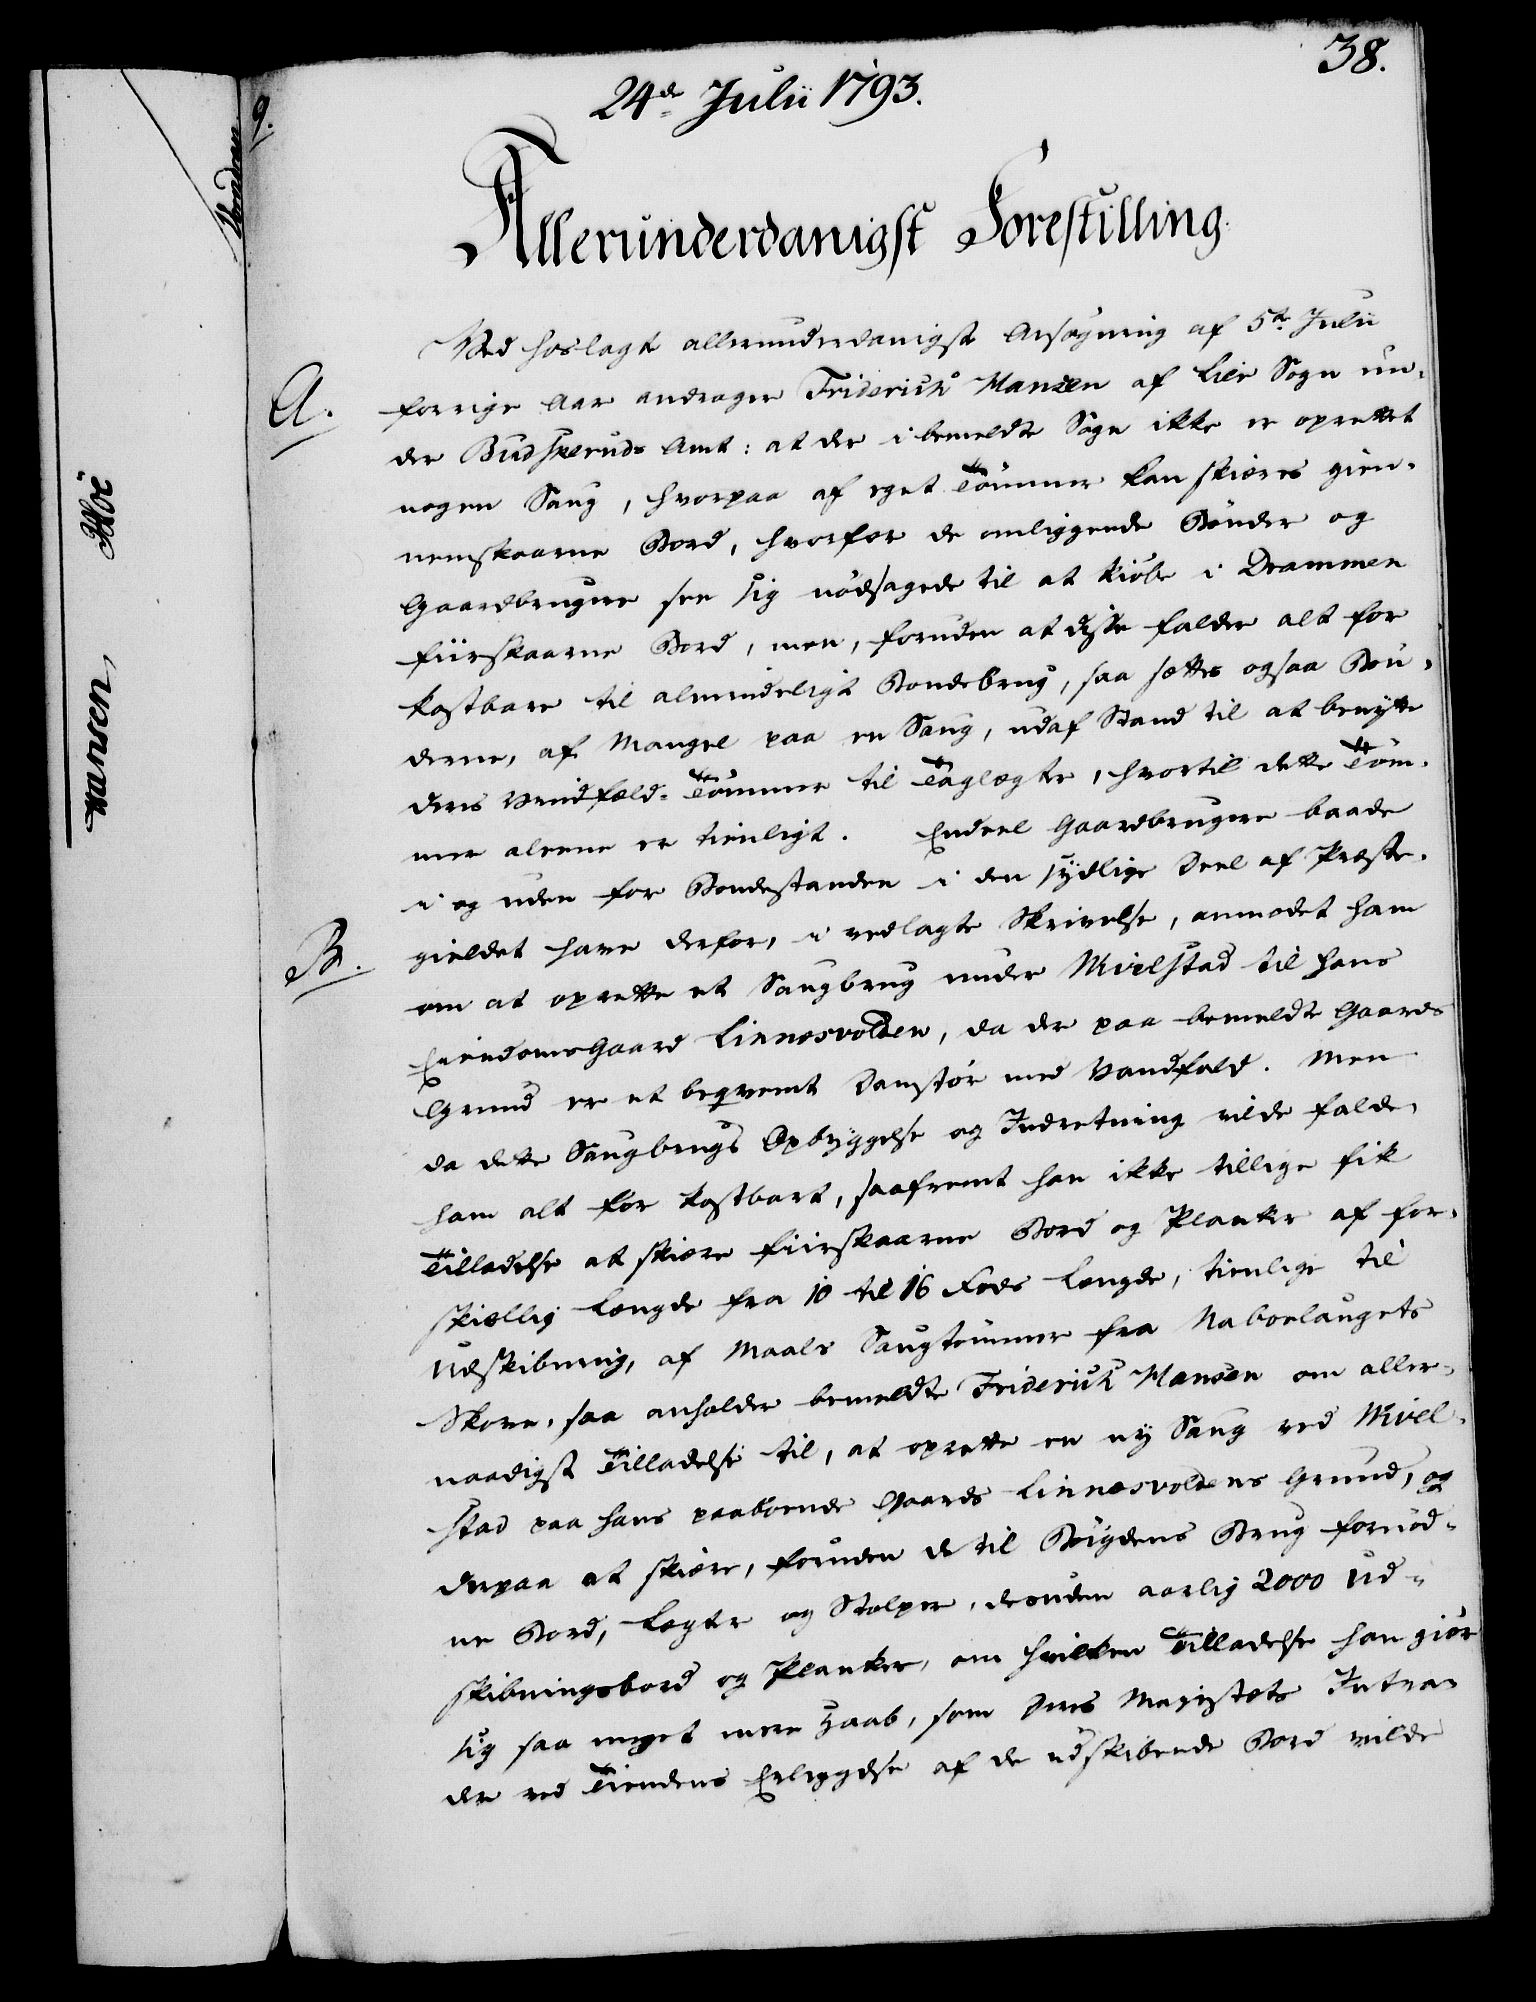 38.
24de Julii 1793.
Allerunderdanigst Forestilling.
Ved hoslagt allerunderdanigst Ansøgning af 5te Julii
A.
forrige Aar andrager Friderich Hansen af Lier Sogn un-
der Budskeruds Amt: at der i bemeldte Sogn ikke er oprettet
nogen Saug, hvorpaa af eget Tömmer kan skiæres gien-
nemskaarne Bord, hvorfor de omliggende Bönder og
Gaardbrugere see sig nödsagede til at kiöbe i Drammen
fiirskaarne Bord, men, foruden at disse falder alt for
kostbare til almindeligt Bondebrug, saa sættes ogsaa Bön-
derne, af Mangel paa en Saug, udaf Stand til at benytte
deres Vindfæld-Tömmer til Taglægter, hvortil dette Töm-
mer alene er tienligt. Endeel Gaardbrugere baade
i og uden for Bondestanden i den sydlige Deel af Præste-
B.
gieldet have derfor, i vedlagte Skrivelse, anmodet ham
om at oprette et Saugbrug under Miælstad til hans
Eiendomsgaard Linnesvolden, da der paa bemeldte Gaards
Grund er et beqvemt Damstör med Vandfald. Men
da dette Saugbrugs Opbyggelse og Indretning vilde falde
ham alt for kostbart, saafremt han ikke tillige fik
Tilladelse at skiære fiirskaarne Bord og Planker af for-
skiællig Længde fra 10 til 16 Fods Længde, tienlige til
Udskibning, af Maals Saugtömmer fra Naboelaugets
Skove, saa anholder bemeldte Friderich Hansen om aller-
naadigst Tilladelse til, at oprette en ny Saug ved Miæl-
stad paa hans paaboende Gaards Linnesvoldens Grund, og
derpaa at skiære, foruden de til Bÿgdens Brug fornöd-
ne Bord, Lægter og Stolper, desuden aarlig 2000 Ud-
skibningsbord og Planker, om hvilken Tilladelse han giör
sig saa meget mere Haab, som Deres Majestæts Intra-
der ved Tiendens Erlæggelse af de udskibende Bord vilde